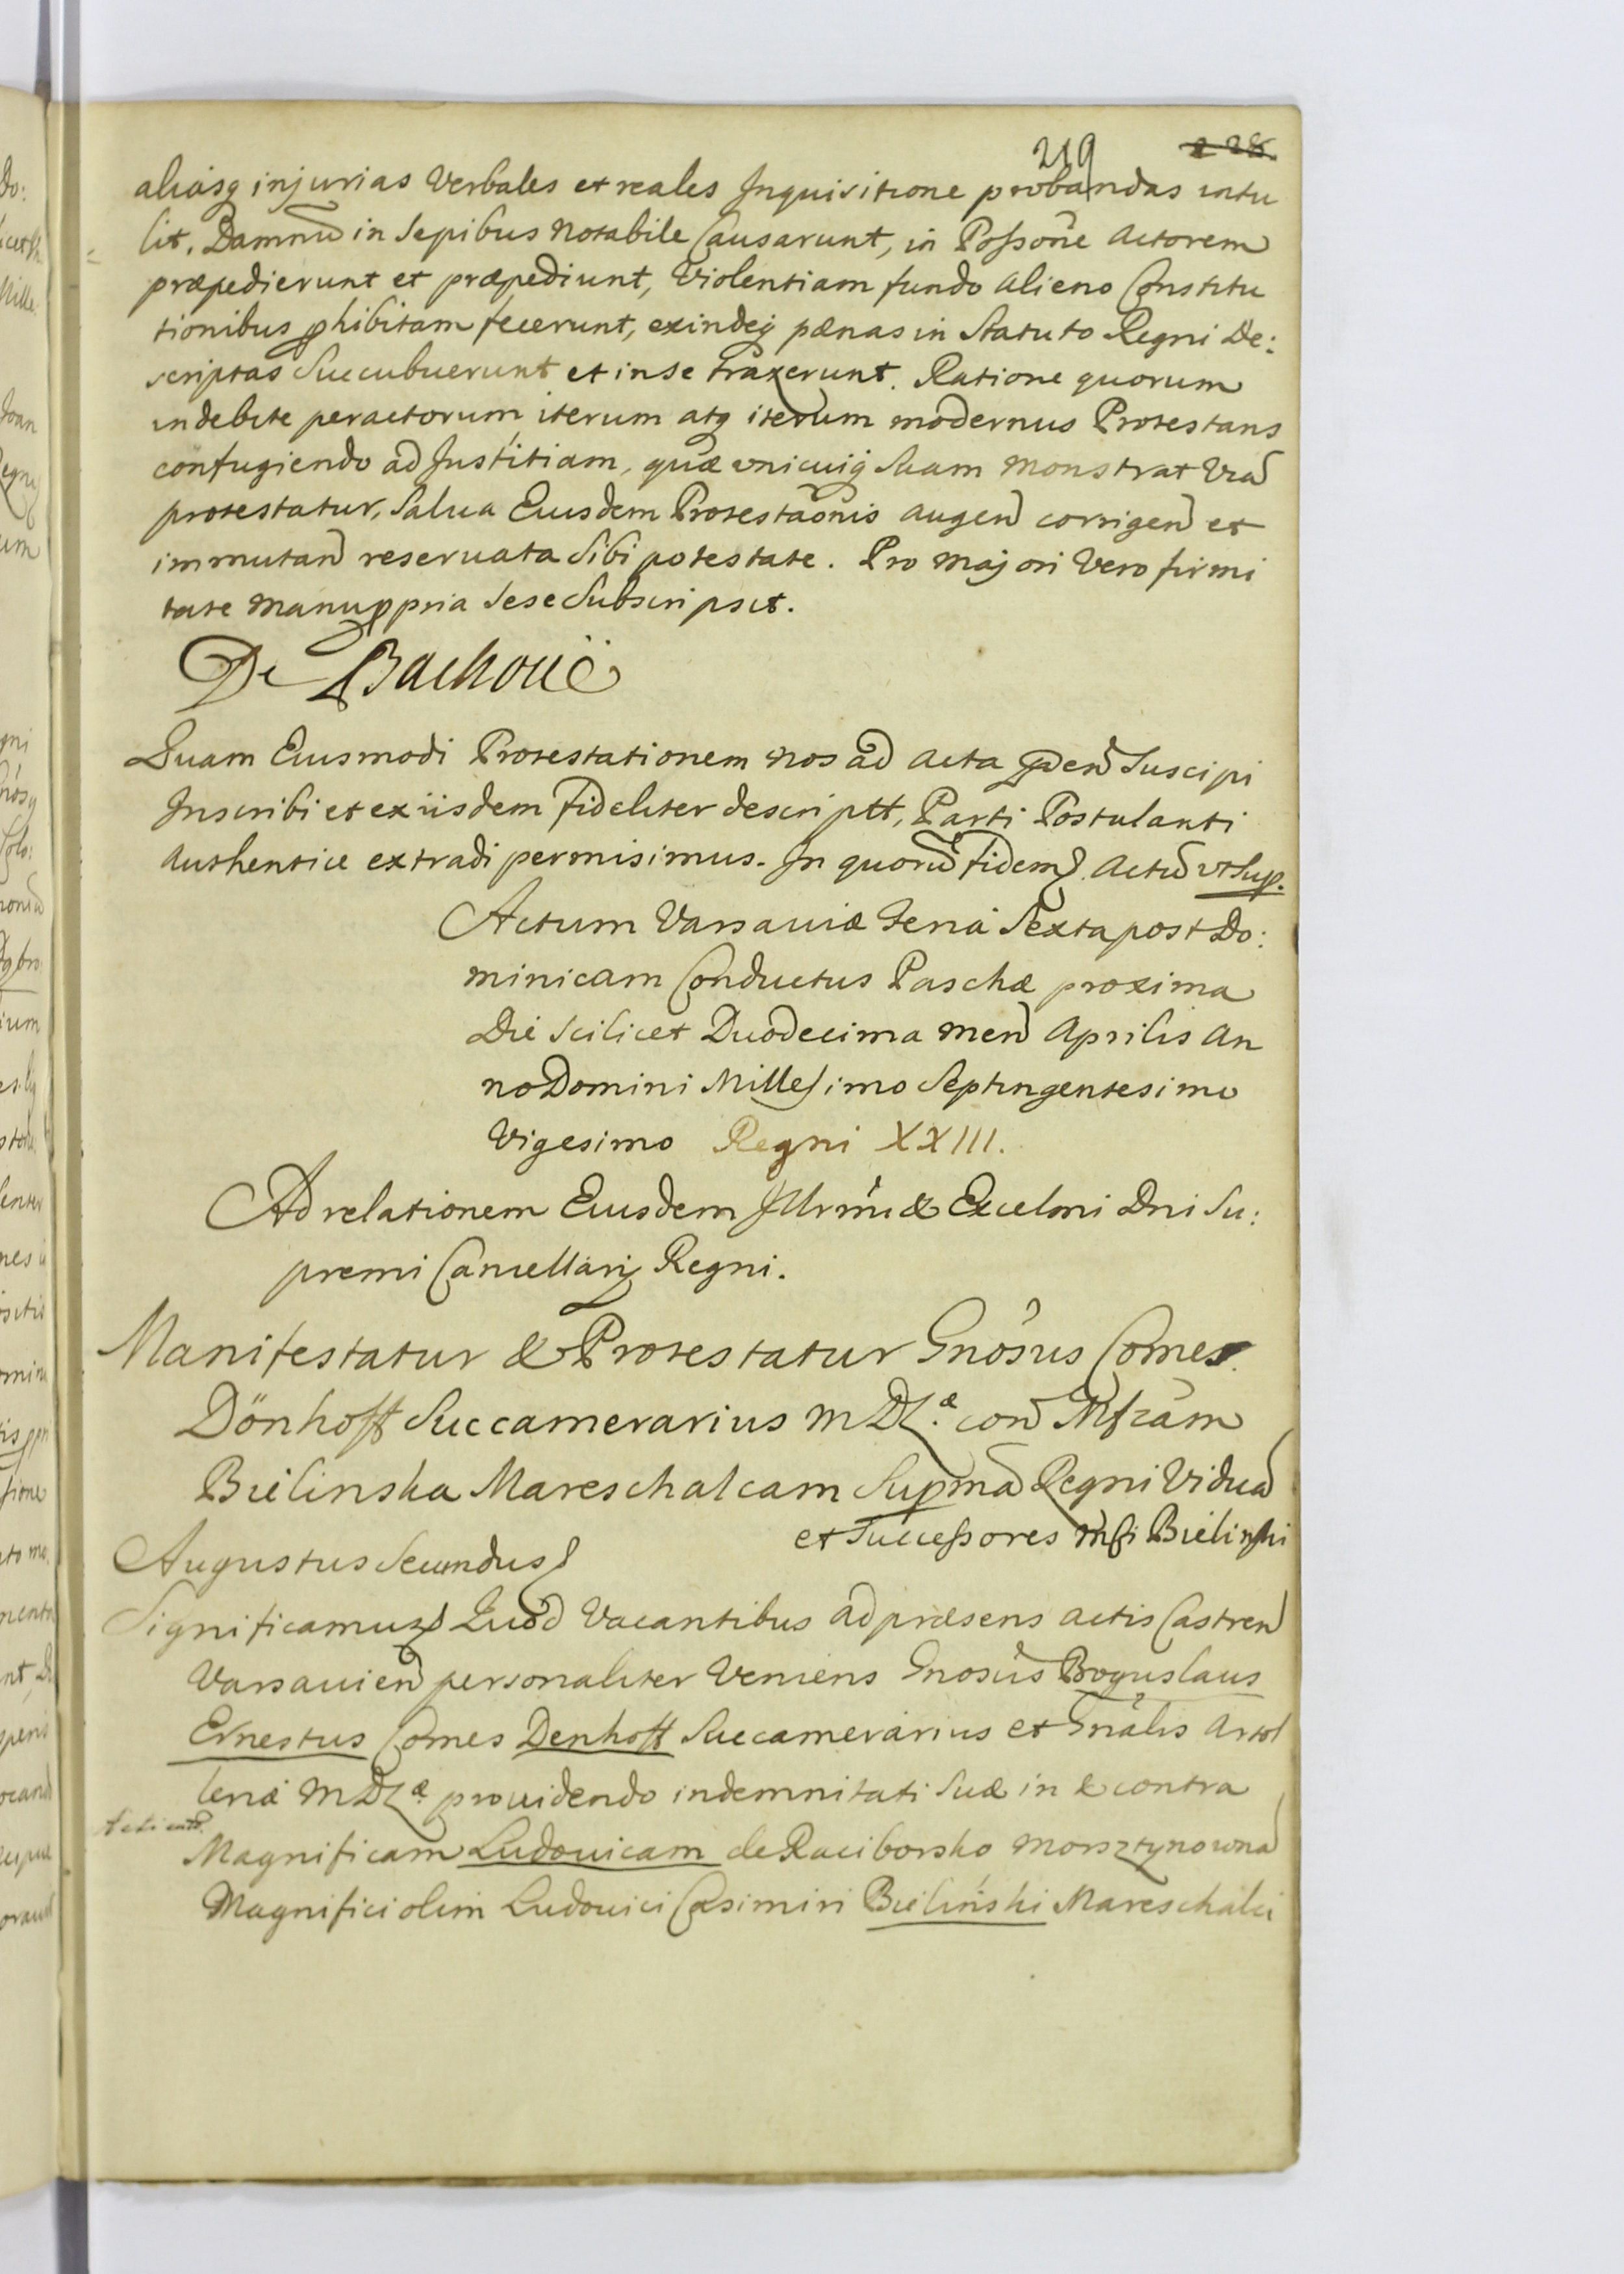 219 228.
aliasq injurias Verbales et reales Inquisitione probandas intu
lit. Damnū in Sepibus Notabile Causarunt, in Possōne Actorem
præpedierunt et præpediunt, Violentiam fundo alieno Constitu
tionibus phibitam fecerunt, exindeq pænas in Statuto Regni De:
scriptas Succubuerunt et in se traxerunt. Ratione quorum
indebite peractorum iterum atq iterum modernus Protestans
confugiendo ad Justitiam, quæ unicuiq Suam Monstrat Viā
protestatur, Salua Eiusdem Protestaōnis augen̄ corrigen̄ et
immutan̄ reseruata Sibi potestate. Pro majori Vero firmi
tate manu ppria Sese Subscripsit.
De Bachoüe
Quam Eiusmodi Protestationem nos ad Acta pden̄ Suscipi
Inscribi et ex iisdem fideliter descriptt, Parti Postulanti
Authentice extradi permisimus. In quorū fidem Actū ut Sup.
Actum Varsauiæ feria Sexta post Do:
minicam Conductus Paschæ proxima
Die Scilicet Duodecima Men̄ Aprilis An
no Domini Millesimo Septingentesimo
Vigesimo Regni XXIII.
Ad relationem Eiusdem Illrmi & Excelmi Dni Su:
premi Cancellarij Regni.
Manifestatur & Protestatur Gnōsus Comes
Dönhoff Succamerarius M D L.æ con̄ Mfcām
Bielinska Mareschalcam Supmā Regni Viduā
et Successores Mfi Bielinski
Augustus Secundus
Significamus Quod Vacantibus ad præsens actis Castren̄
Varsauien̄ personaliter Veniens Gnosūs Boguslaus
Ernestus Comes Denhoff Succamerarius et Gnālis Artol
leriæ M D L æ. prouidendo indemnitati Suæ in & contra
Magnificam Ludouicam de Raciborsko Morsztynownā
Magnifici olim Ludouici Casimiri Bieliński Mareschalci